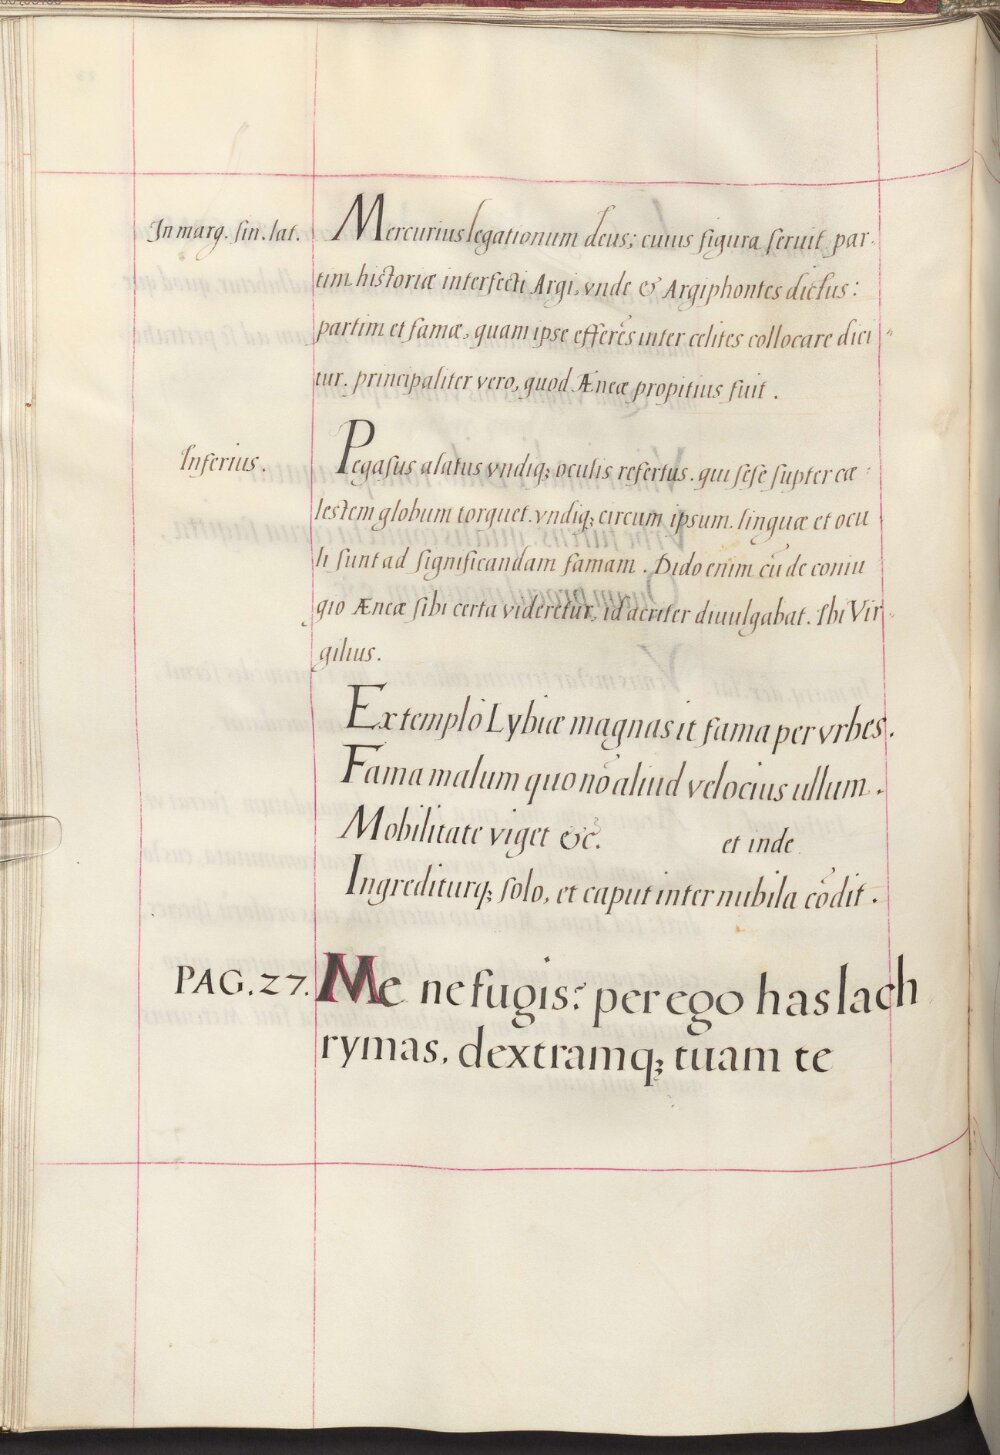 In marg. sin. lat. Mercurius legationum deus; cuius figura seruit par-
tim historiæ interfecti Argi, vnde & Argiphontes dictus:
partim et famæ, quam ipse efferēs inter celites collocare dici-
tur. principaliter vero, quod Æneæ propitius fuit.
Inferius. Pegasus alatus vndiq; oculis refertus. qui sese supter cæ-
lestem globum torquet. vndiq; circum ipsum. linguæ et ocu
li sunt ad significandam famam. Dido enim cū de coniu
gio Æneæ sibi certa videretur, id acriter diuulgabat. Ibi Vir-
gilius.
Extemplo Lybiæ magnas it fama per vrbes.
Fama malum quo nō aliud velocius ullum.
Mobilitate viget &c̃. et inde
Ingrediturq; solo, et caput inter nubila cōdit.
PAG. 27. Me ne fugis? per ego has lach
rymas, dextramq; tuam te